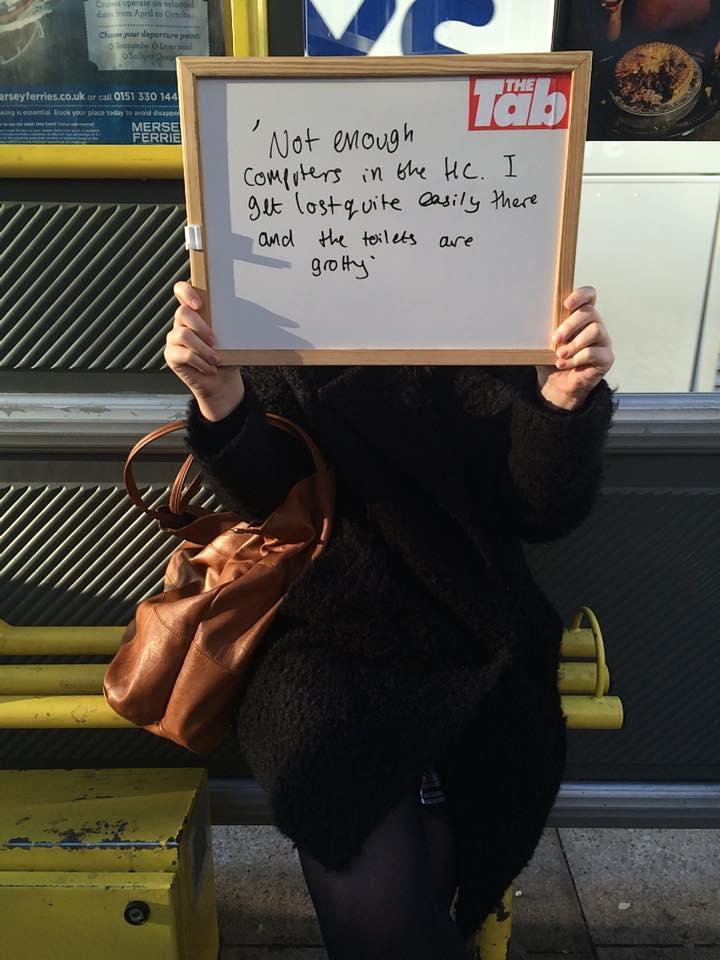 Cruises operate on selected
dates from April to October
Choose your departure point:
Seacombe Liverpool
Salford Quays
erseyferries.co.uk or call 0151 330 144
king is essential. Book your place today to avoid disappoi
MERSE
FERRIE
THE
Tab
'Not enough
computers in the HC. I
get lost quite easily there
and the toilets are
grotty'